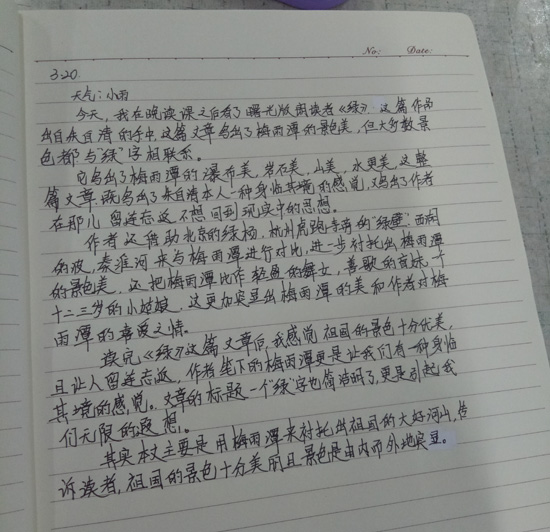 No:   Date:
3.20.
天气:小雨
今天,我在晚读课之后看了曙光版阅读者《绿》,这篇作品
出自朱自清的手中,这篇文章写出了梅雨潭的景色美,但大多数景
色都与"绿"字相联系。
它写出了梅雨潭的瀑布美,岩石美,山美,水更美,这整
篇文章,既写出了朱自清本人一种身临其境的感觉,又写出了作者
在那儿留连忘返不想回到现实中的思想。
作者还借助北京的绿杨,杭州虎跑寺旁的"绿壁",西湖
的波,秦淮河来与梅雨潭进行对比,进一步衬托出梅雨潭
的景色美,还把梅雨潭比作轻盈的舞女,善歌的盲妹,十
十二三岁的小姑娘,这更加突显出梅雨潭的美和作者对梅
雨潭的喜爱之情。
读完《绿》这篇文章后,我感觉祖国的景色十分优美,
且让人留连忘返,作者笔下的梅雨潭更是让我们有一种身临
其境的感觉。文章的标题一个"绿"字也简洁明了,更是引起我
们无限的遐想。
其实本文主要是用梅雨潭来衬托出祖国的大好河山,告
诉读者,祖国的景色十分美丽且景色是由内而外地突显。